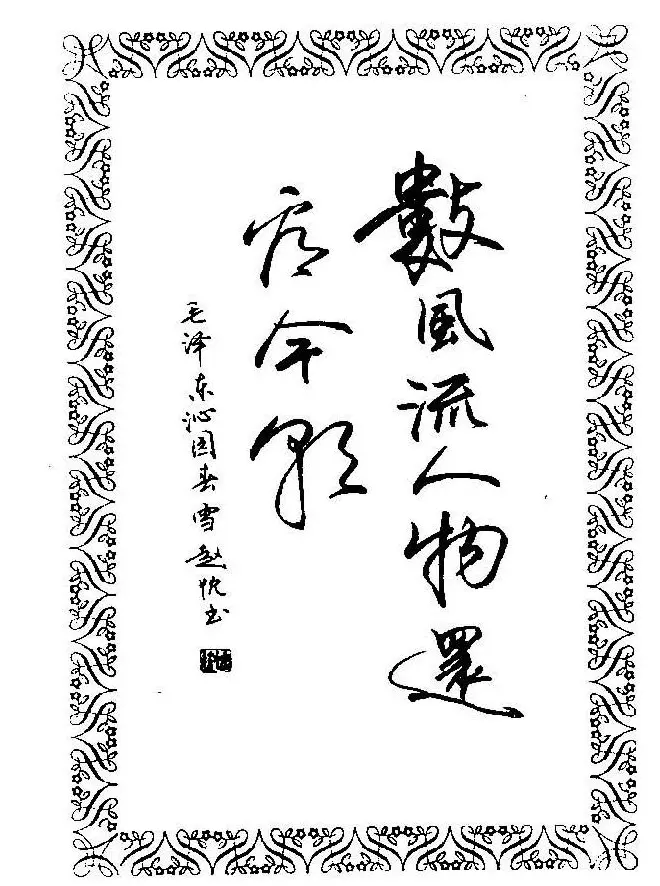 數風流人物還
看今朝
毛泽东沁园春雪赵书